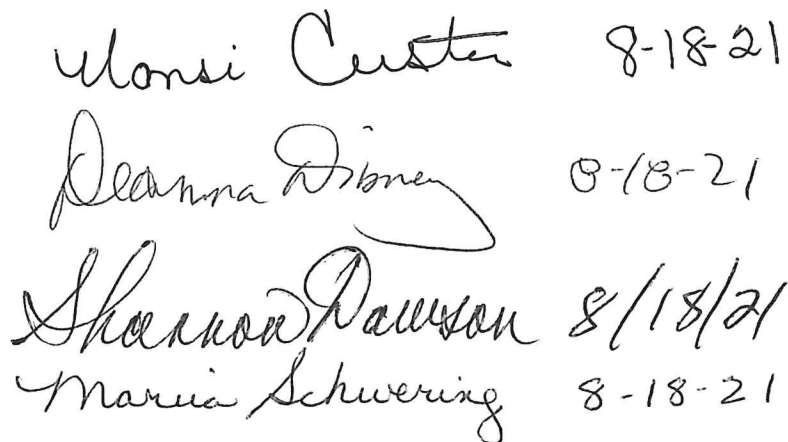 Custer 8-18-21
Deanna Dibney 8-18-21
Shannon Dawson 8/18/21
Marcia Schwering 8-18-21